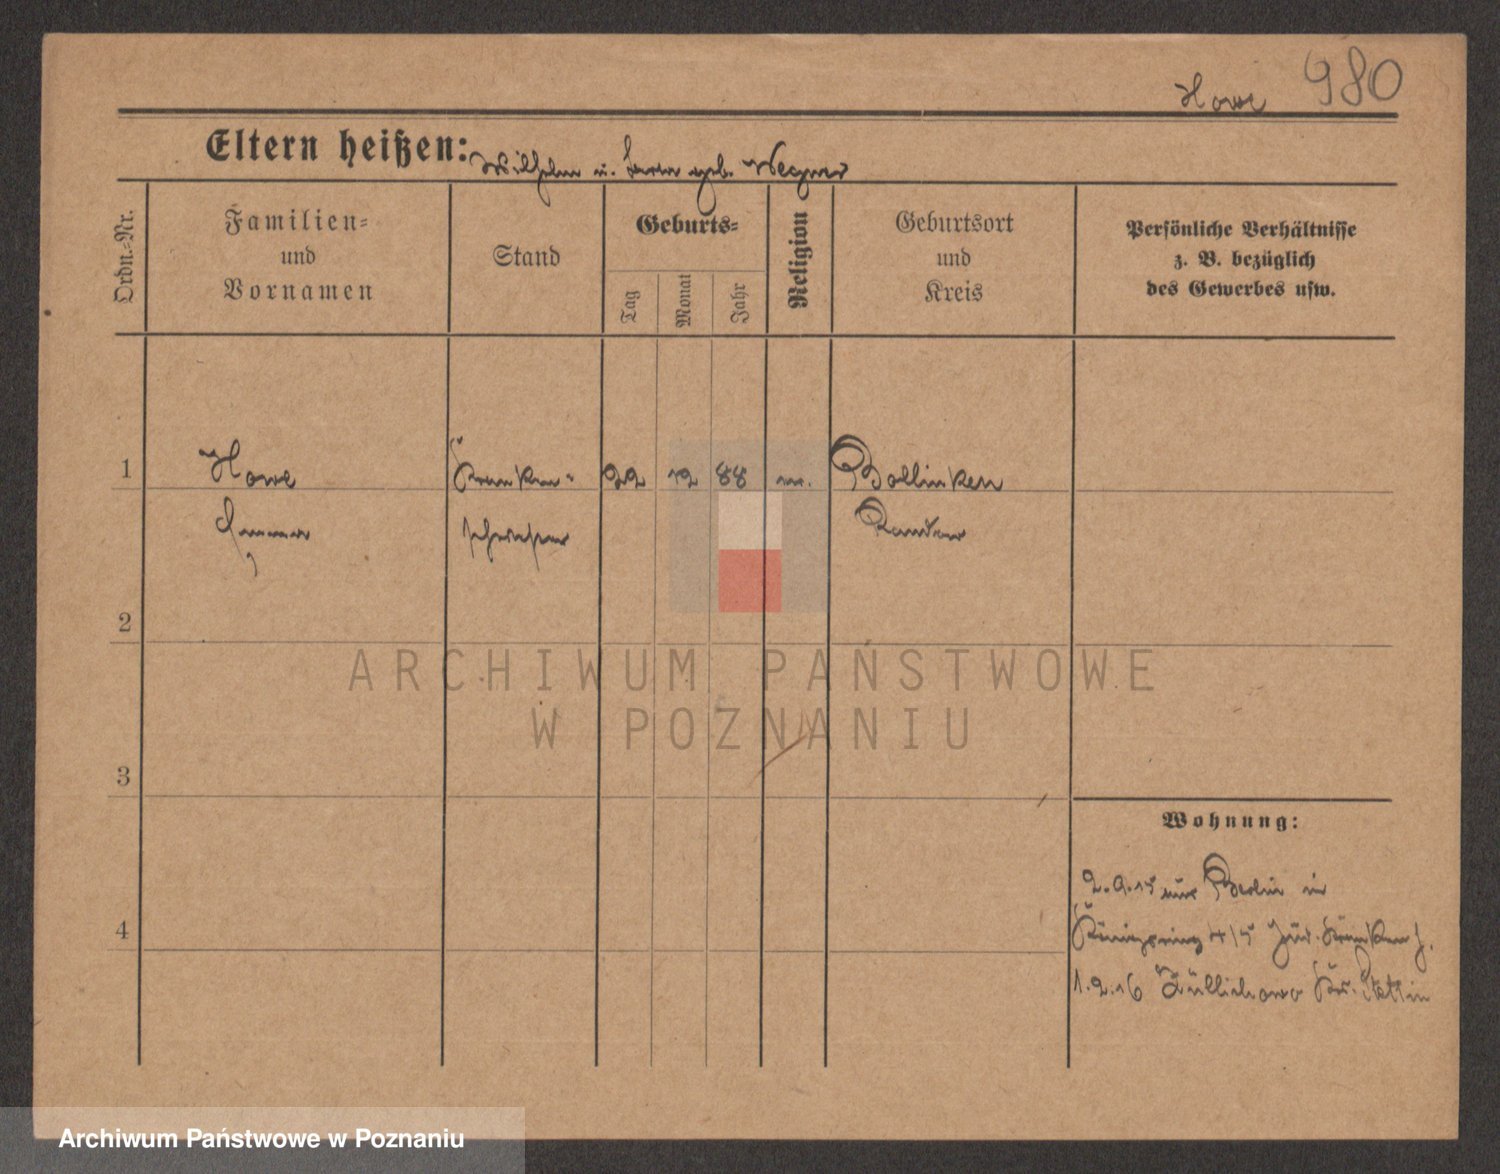 Howe 980
Eltern heißen: Wilhelm u. geb. Wegner
Ordn.-Nr.
Familien-
und
Vornamen
Stand
Geburts-
Tag
Monat
Jahr
Religion
Geburtsort
und
Kreis
Persönliche Verhältnisse
z. B. bezüglich
des Gewerbes usw.
1 Howe Kranken- 22 12 88 ev. Bollinken
schwester Randow
2
ARCHIWUM PAŃSTWOWE
W POZNANIU
3
Wohnung:
2.9.15 aus Berlin in
Königsring 4/5 Jüd. Krankenh.
4
1.2.16 Züllchow Kr. Stettin
Archiwum Państwowe w Poznaniu